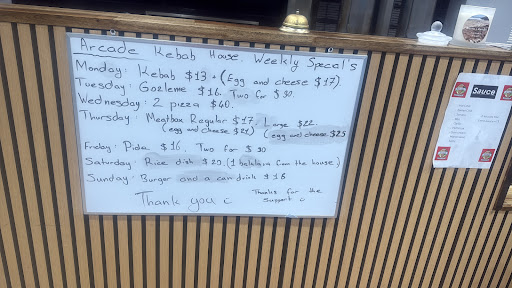 Arcade Kebab House. Weekly Specal's
Monday: Kebab $13 + (Egg and cheese $17)
Tuesday: Gozleme $16. Two for $30.
Wednesday: 2 pizza $40.
Thursday: Meatbox Regular $17, Large $22
(egg and cheese $21) (egg and cheese $25
Friday: Pide $16, Two for $30
Saturday: Rice dish $20 (1 baklava from the house)
Sunday: Burger and a can drink $18
Thank you
Thanks for the
support
Sauce